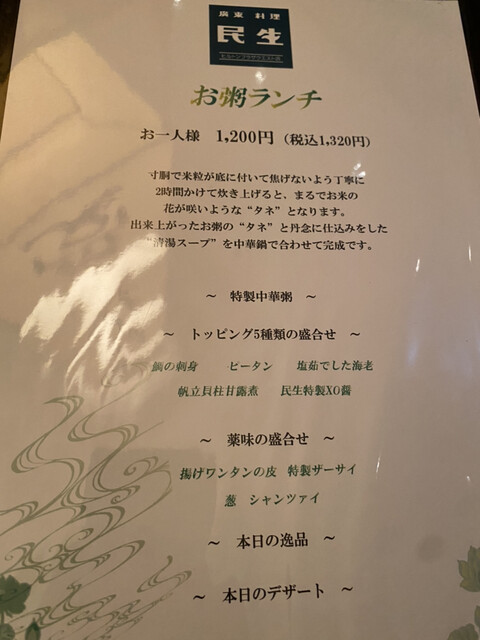 廣東 料理
民生
お粥ランチ
お一人様 1,200円 (税込1,320円)
寸胴で米粒が底に付いて焦げないよう丁寧に
2時間かけて炊き上げると、まるでお米の
花が咲いような“タネ”となります。
出来上がったお粥の“タネ”と丹念に仕込みをした
“清湯スープ”を中華鍋で合わせて完成です。
～ 特製中華粥 ～
～ トッピング5種類の盛合せ ～
鯛の刺身 ピータン 塩茹でした海老
帆立貝柱甘露煮 民生特製XO醬
～ 薬味の盛合せ ～
揚げワンタンの皮 特製ザーサイ
葱 シャンツァイ
～ 本日の逸品 ～
～ 本日のデザート ～